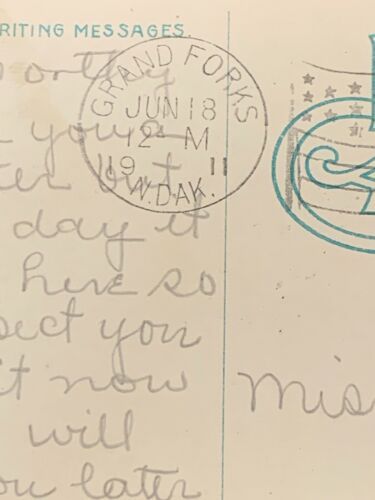 RITING MESSAGES.
GRAND FORKS
JUN 18
12 - M
19 11
N. DAK.
ortly
your
ter out
day it
here so
pect you
it now
will
ou later
Mis